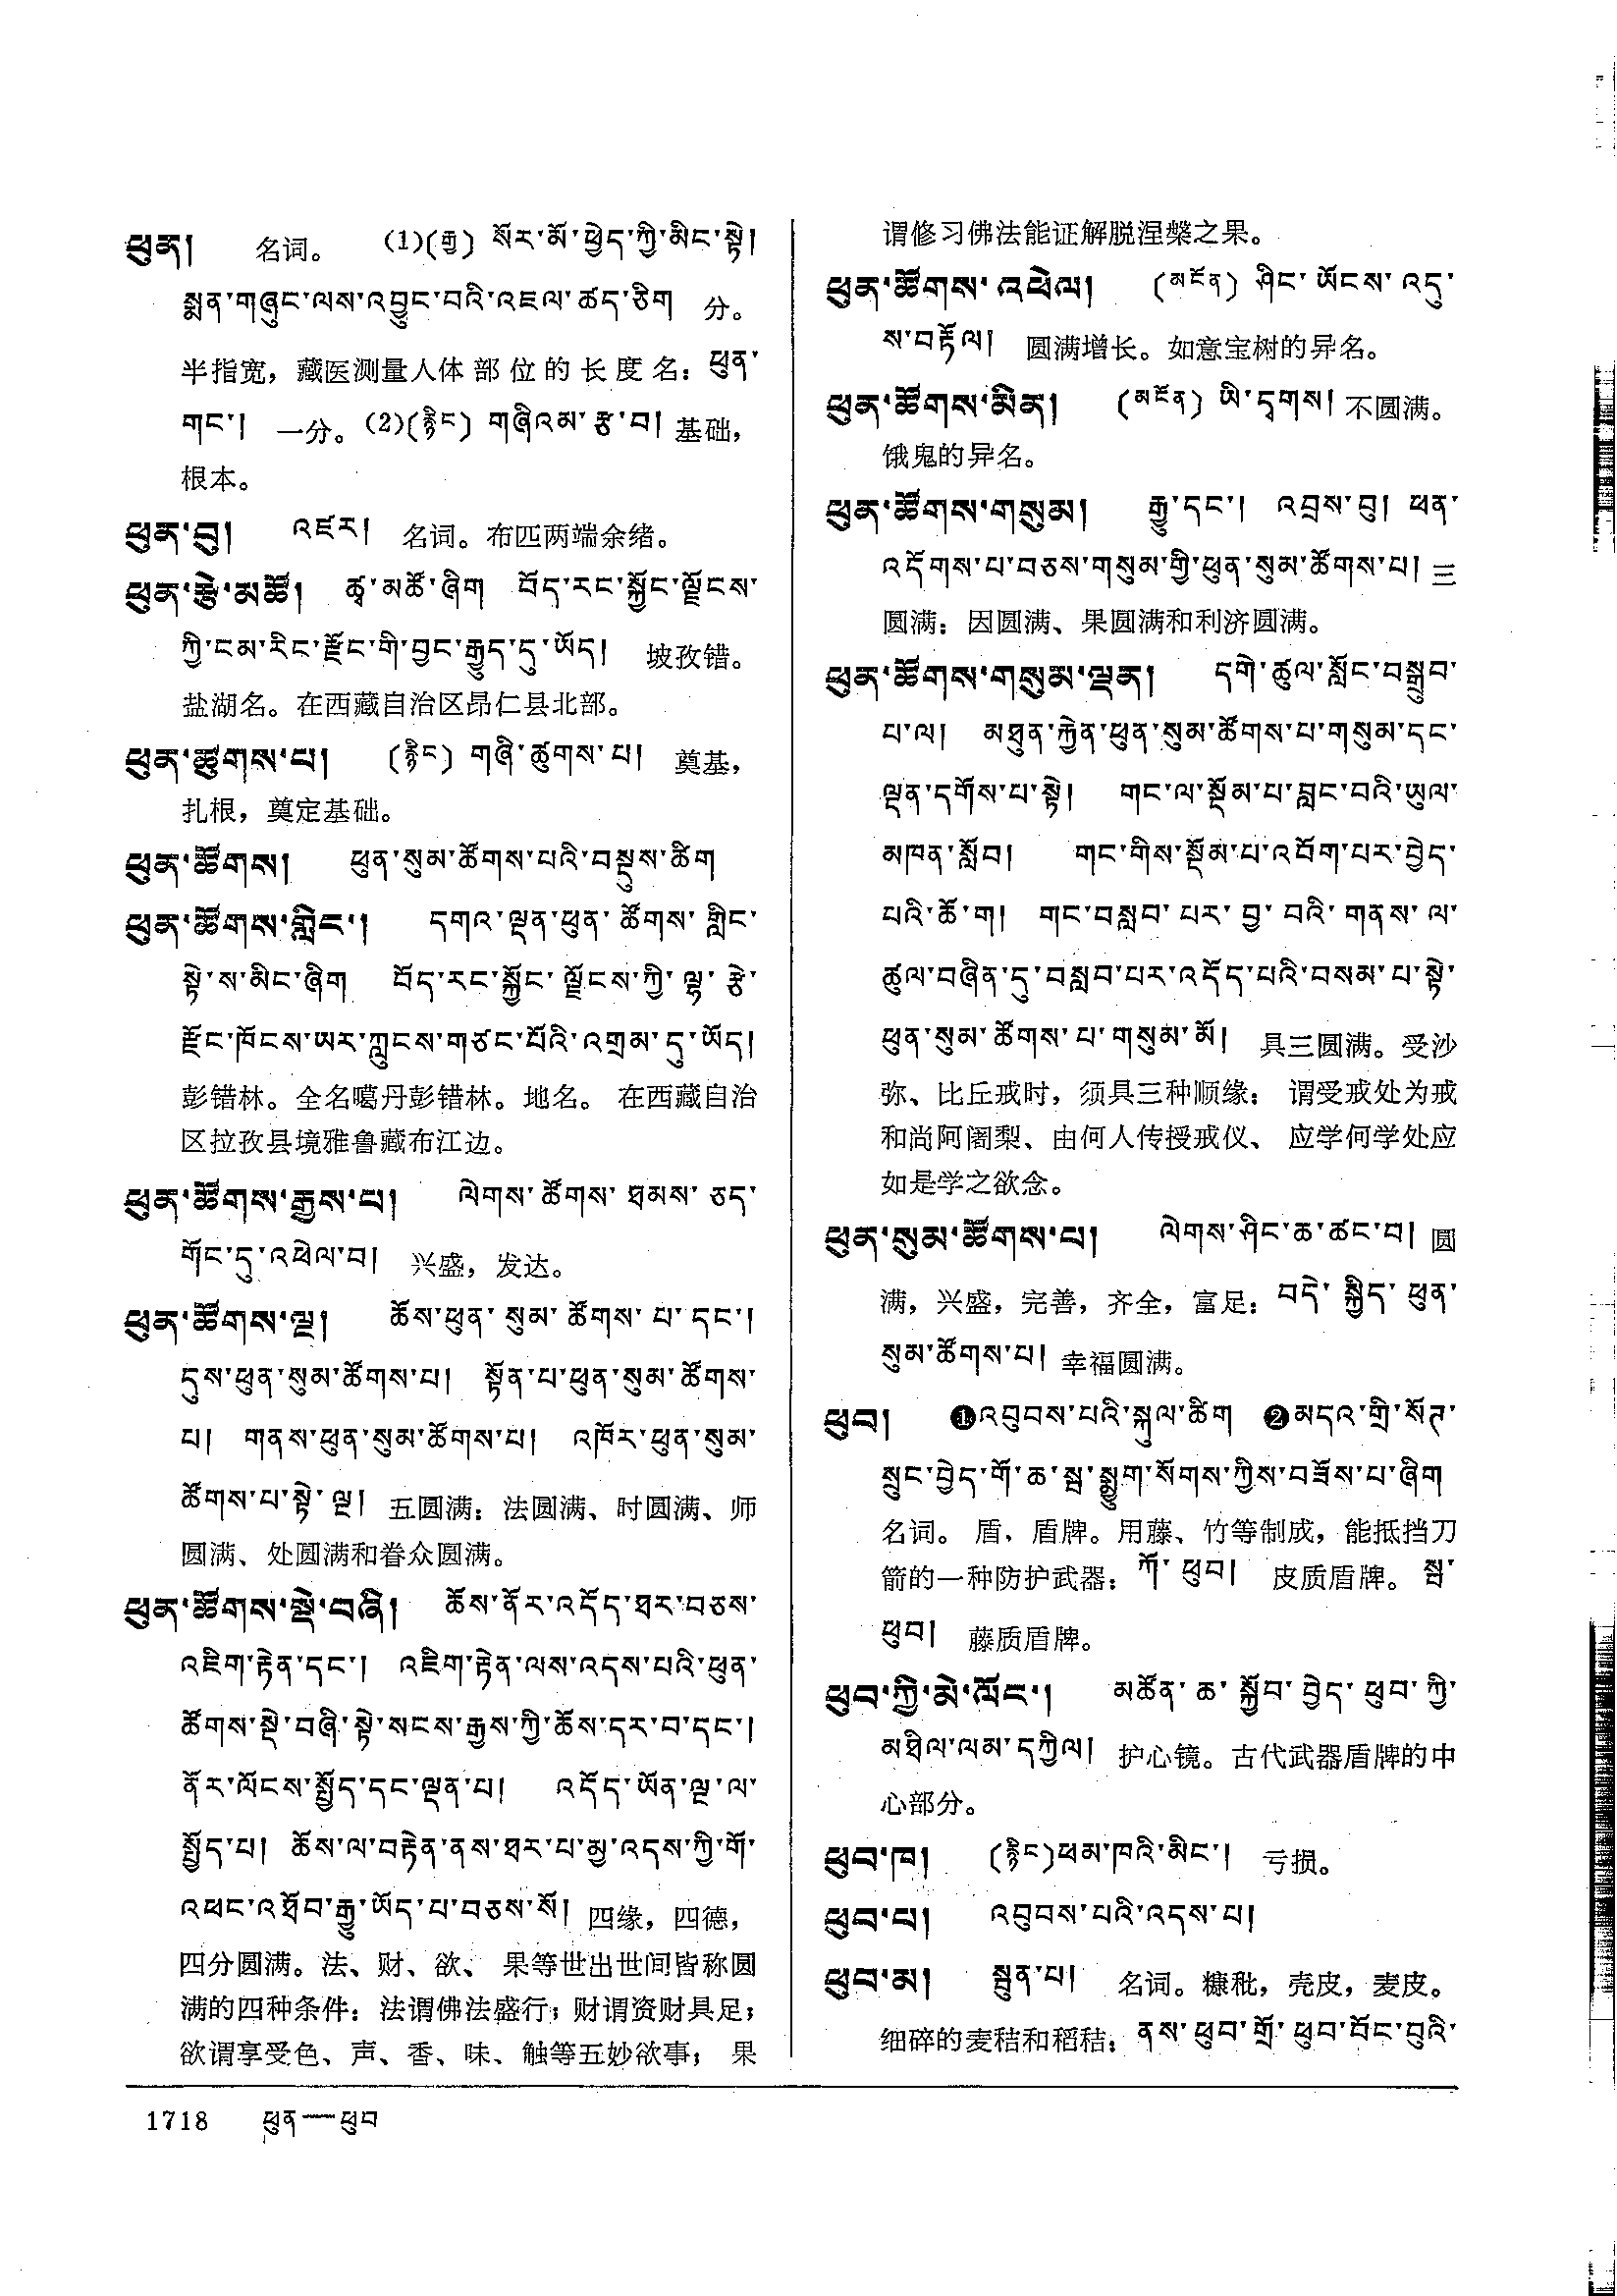 ཕུན། 名词。 (1)(རྒྱ) སོར་མོ་ཕྱེད་ཀྱི་མིང་སྟེ།
སྨན་གཞུང་ལས་འབྱུང་བའི་འཇལ་ཚད་ཅིག 分。
半指宽，藏医测量人体部位的长度名：ཕུན་
གང་། 一分。(2)(རྙིང) གཞིའམ་རྩ་བ། 基础，
根本。
ཕུན་བུ། འཛར། 名词。布匹两端余绪。
ཕུན་རྩེ་མཚོ། ཚྭ་མཚོ་ཞིག བོད་རང་སྐྱོང་ལྗོངས་
ཀྱི་ངམ་རིང་རྫོང་གི་བྱང་རྒྱུད་དུ་ཡོད། 坡孜错。
盐湖名。在西藏自治区昂仁县北部。
ཕུན་ཚུགས་པ། (རྙིང) གཞི་ཚུགས་པ། 奠基，
扎根，奠定基础。
ཕུན་ཚོགས། ཕུན་སུམ་ཚོགས་པའི་བསྡུས་ཚིག
ཕུན་ཚོགས་གླིང་། དགའ་ལྡན་ཕུན་ཚོགས་གླིང་
སྟེ་ས་མིང་ཞིག བོད་རང་སྐྱོང་ལྗོངས་ཀྱི་ལྷ་རྩེ་
རྫོང་ཁོངས་ཡར་ཀླུངས་གཙང་པོའི་འགྲམ་དུ་ཡོད།
彭错林。全名噶丹彭错林。地名。 在西藏自治
区拉孜县境雅鲁藏布江边。
ཕུན་ཚོགས་རྒྱས་པ། ལེགས་ཚོགས་ཐམས་ཅད་
གོང་དུ་འཕེལ་བ། 兴盛，发达。
ཕུན་ཚོགས་ལྔ། ཆོས་ཕུན་སུམ་ཚོགས་པ་དང་།
དུས་ཕུན་སུམ་ཚོགས་པ། སྟོན་པ་ཕུན་སུམ་ཚོགས་
པ། གནས་ཕུན་སུམ་ཚོགས་པ། འཁོར་ཕུན་སུམ་
ཚོགས་པ་སྟེ་ལྔ། 五圆满：法圆满、时圆满、师
圆满、处圆满和眷众圆满。
ཕུན་ཚོགས་སྡེ་བཞི། ཆོས་ནོར་འདོད་ཐར་བཅས་
འཇིག་རྟེན་དང་། འཇིག་རྟེན་ལས་འདས་པའི་ཕུན་
ཚོགས་སྡེ་བཞི་སྟེ་སངས་རྒྱས་ཀྱི་ཆོས་དར་བ་དང་།
ནོར་ལོངས་སྤྱོད་དང་ལྡན་པ། འདོད་ཡོན་ལྔ་ལ་
སྤྱོད་པ། ཆོས་ལ་བརྟེན་ནས་ཐར་པ་མྱ་འདས་ཀྱི་གོ་
འཕང་འཐོབ་རྒྱུ་ཡོད་པ་བཅས་སོ། 四缘，四德，
四分圆满。法、财、欲、 果等世出世间皆称圆
满的四种条件：法谓佛法盛行；财谓资财具足；
欲谓享受色、声、香、味、触等五妙欲事； 果
谓修习佛法能证解脱涅槃之果。
ཕུན་ཚོགས་འཕེལ། (མངོན) ཤིང་ཡོངས་འདུ་
ས་བརྟོལ། 圆满增长。如意宝树的异名。
ཕུན་ཚོགས་མིན། (མངོན) ཡི་དྭགས། 不圆满。
饿鬼的异名。
ཕུན་ཚོགས་གསུམ། རྒྱུ་དང་། འབྲས་བུ། ཕན་
འདོགས་པ་བཅས་གསུམ་གྱི་ཕུན་སུམ་ཚོགས་པ། 三
圆满：因圆满、果圆满和利济圆满。
ཕུན་ཚོགས་གསུམ་ལྡན། དགེ་ཚུལ་སློང་བསྒྲུབ་
པ་ལ། མཐུན་རྐྱེན་ཕུན་སུམ་ཚོགས་པ་གསུམ་དང་
ལྡན་དགོས་པ་སྟེ། གང་ལ་སྡོམ་པ་བླང་བའི་ཡུལ་
མཁན་སློབ། གང་གིས་སྡོམ་པ་འབོག་པར་བྱེད་
པའི་ཆོ་ག གང་བསླབ་པར་བྱ་བའི་གནས་ལ་
ཚུལ་བཞིན་དུ་བསླབ་པར་འདོད་པའི་བསམ་པ་སྟེ་
ཕུན་སུམ་ཚོགས་པ་གསུམ་མོ། 具三圆满。受沙
弥、比丘戒时，须具三种顺缘； 谓受戒处为戒
和尚阿阇梨、由何人传授戒仪、 应学何学处应
如是学之欲念。
ཕུན་སུམ་ཚོགས་པ། ལེགས་ཤིང་ཆ་ཚང་བ། 圆
满，兴盛，完善，齐全，富足：བདེ་སྐྱིད་ཕུན་
སུམ་ཚོགས་པ། 幸福圆满。
ཕུབ། ❶འབུབས་པའི་སྐུལ་ཚིག ❷མདའ་གྲི་སོཊ་
སྲུང་བྱེད་གོ་ཆ་སྦ་སྨྱུག་སོགས་ཀྱིས་བཟོས་པ་ཞིག
名词。 盾，盾牌。用藤、竹等制成，能抵挡刀
箭的一种防护武器：ཀོ་ཕུབ། 皮质盾牌。སྦ་
ཕུབ། 藤质盾牌。
ཕུབ་ཀྱི་མེ་ལོང་། མཚོན་ཆ་སྐྱོབ་བྱེད་ཕུབ་ཀྱི་
མཐིལ་ལམ་དཀྱིལ། 护心镜。古代武器盾牌的中
心部分。
ཕུབ་ཁ། (རྙིང)ཕམ་ཁའི་མིང་། 亏损。
ཕུབ་པ། འབུབས་པའི་འདས་པ།
ཕུབ་མ། སྦུན་པ། 名词。糠秕，壳皮，麦皮。
细碎的麦秸和稻秸：ནས་ཕུབ་གྲོ་ཕུབ་བོང་བུའི་
1718 ཕུན—ཕུབ